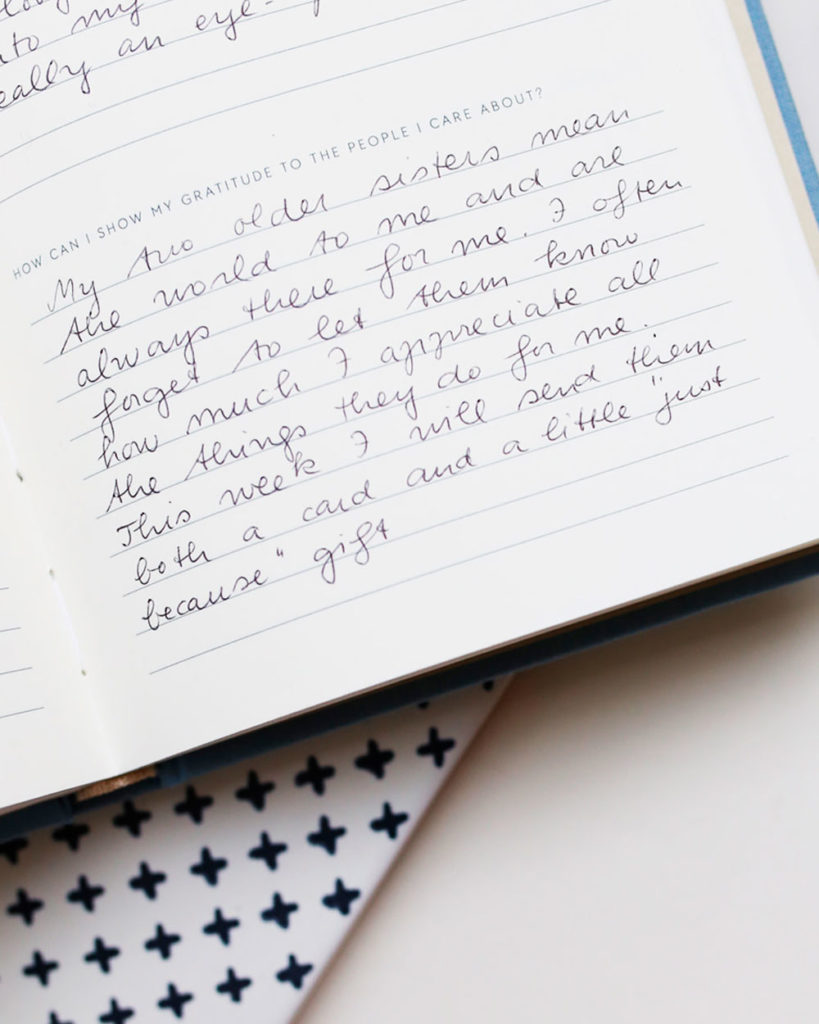 to my
really an eye-
HOW CAN I SHOW MY GRATITUDE TO THE PEOPLE I CARE ABOUT?
My two older sisters mean
the world to me and are
always there for me. I often
forget to let them know
how much I appreciate all
the things they do for me.
This week I will send them
both a card and a little "just
because" gift